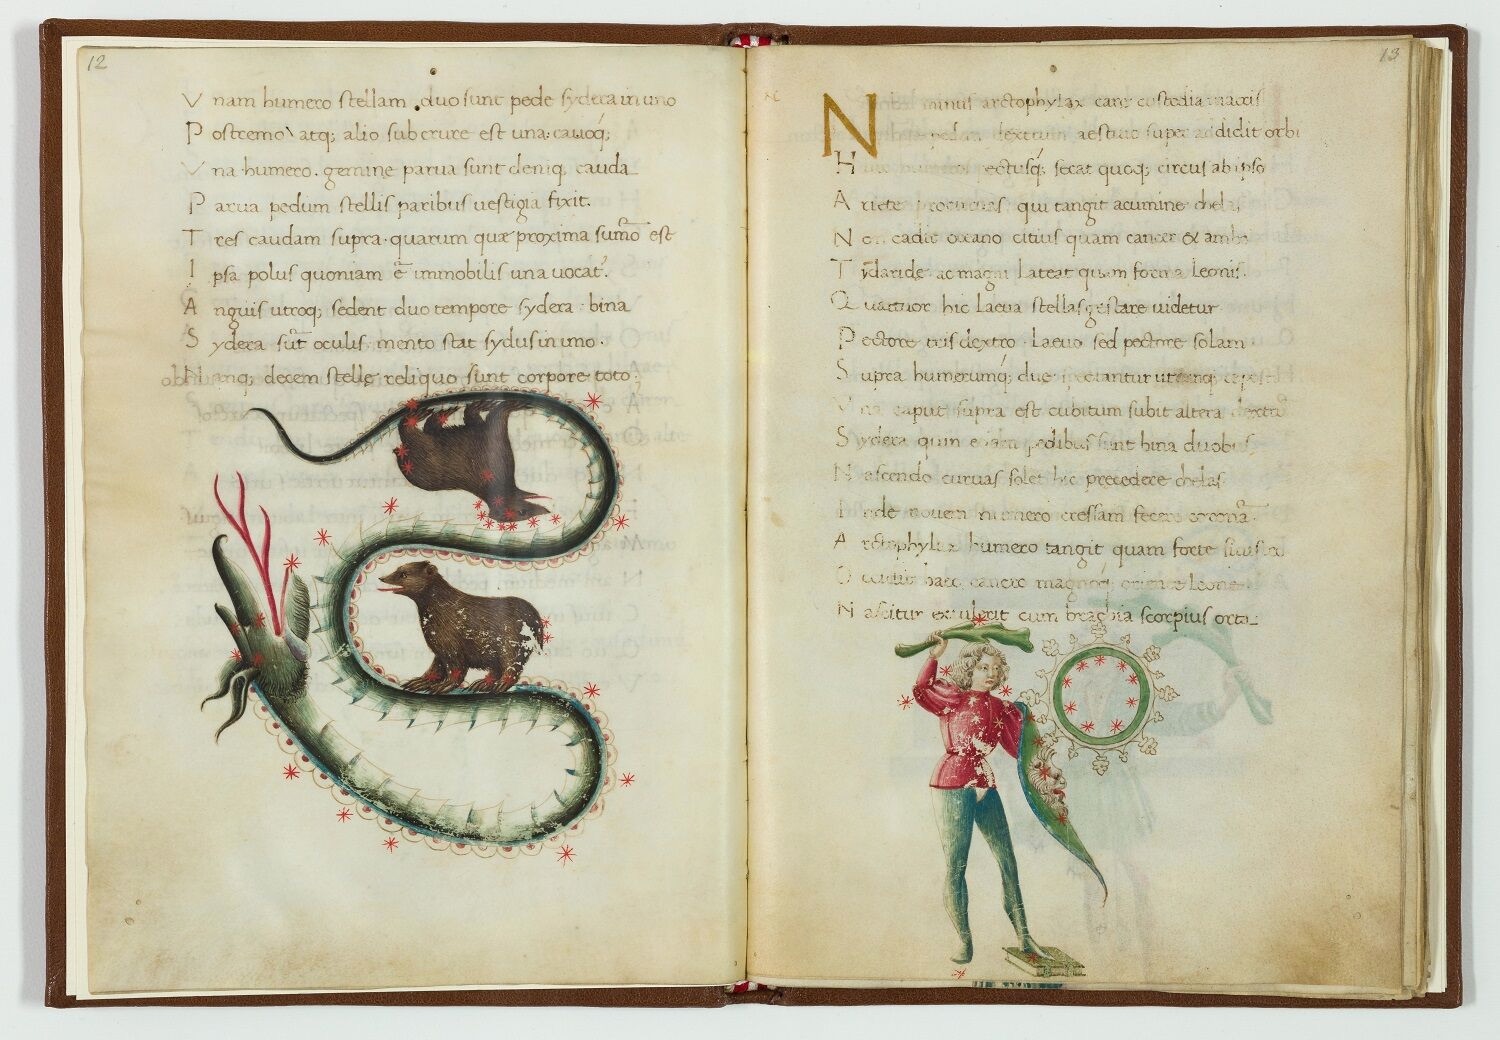 12
Vnam humero stellam duo sunt pede sydera in uno
Postremo atq; alio sub crure est una; cauoq;
Vna humero. gemine parua sunt deniq; cauda
Parua pedum stellis paribus uestigia fixit.
Tres caudam supra quarum quæ proxima sumo est
Ipsa polus quoniam ē immobilis una uocat.
Anguis utroq; sedent duo tempore sydera bina
Sydera sūt oculis mento stat sydus in imo.
Nanq; decem stelle reliquo sunt corpore toto.
13
N minus arctophylax custodia
dextrum aestiuo super addidit orbi
H rectusq; secat quoq; circus ab ipso
Ariete qui tangit acumine chelas
Non cadit oceano citius quam cancer & ambo
Tydaride ac magni Lateat quam forma Leonis.
Quattuor hic Laeua stellas gestare uidetur
Pectore tris dextro Laeuo sed pectore solam
Supra humerumq; due
Vna caput supra est cubitum subit altera dextrum
Sydera quin etiam pedibus sunt bina duobus
Nascendo curuas solet hic precedere chelas
Inde nouem numero cressam fecere
Arctophylax humero tangit quam forte
cancro magnoq; Leone
Nascitur cum brachia scorpius